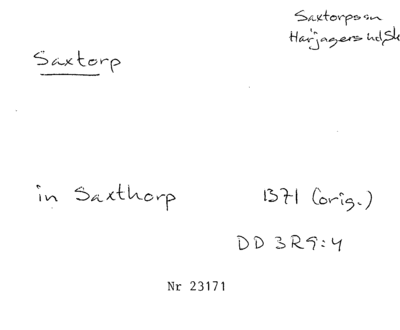 Saxtorps sn
Harjagers hd, Sk
Saxtorp
in Saxthorp 1371 (orig.)
DD 3R9:4
Nr 23171